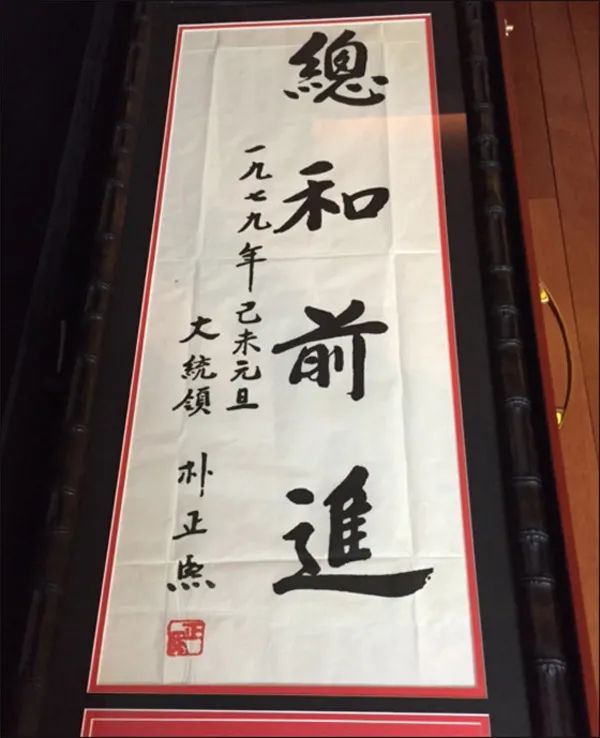 總和前進
一九七九年己未元旦
大統領 朴正熙
正熙